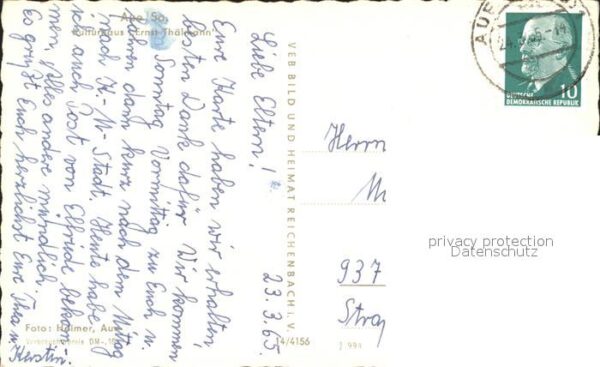 Aue Sa.
Kulturhaus "Ernst Thälmann"
23.3.65
Liebe Eltern!
Eure Karte haben wir erhalten,
besten Dank dafür. Wir kommen
Sonntag Vormittag zu Euch u.
fahren dann kurz nach dem Mittag
nach K.-M.-Stadt. Heute habe
ich auch Post von Elfriede bekom
men. Alles andere mündlich.
Es grüßt Euch herzlichst Eure Thea u.
Kerstin.
Foto: Helmer, Aue
Verbraucherpreis DM -,
14/4156
VEB BILD UND HEIMAT REICHENBACH i. V.
AUE
10
DEUTSCHE
DEMOKRATISCHE REPUBLIK
Herrn
M
937
Straß
privacy protection
Datenschutz